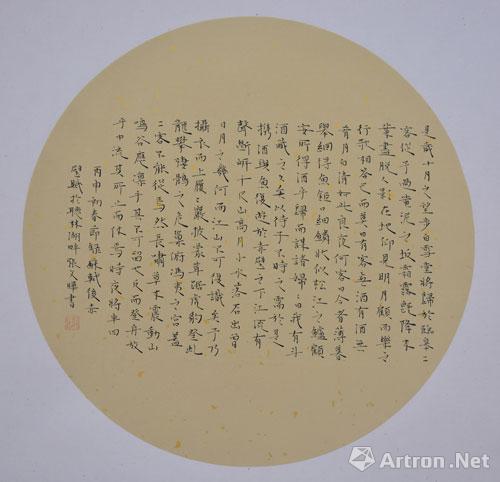 是歲十月之望步自雪堂將歸於臨皋二
客從予過黃泥之坂霜露既降木
葉盡脫人影在地仰見明月顧而樂之
行歌相答已而嘆曰有客無酒有酒無
肴月白清如此良夜何客曰今者薄暮
舉網得魚巨口細鱗狀似松江之鱸顧
安所得酒乎歸而謀諸婦々曰我有斗
酒藏之久矣以待子不時之需於是
携酒與魚復遊於赤壁之下江流有
聲斷岸千尺山高月小水落石出曾
日月之幾何而江山不可復識矣予乃
攝衣而上履巖披蒙茸踞虎豹登虬
龍攀棲鶻之危巢俯馮夷之宮蓋
二客不能從焉然長嘯草木震動山
鳴谷應凜乎其不可留也反舟放
乎中流其所止而休焉時夜將半四
丙申初春節錄蘇軾後赤
壁賦於聽林湖畔張文暉書
Artron.Net